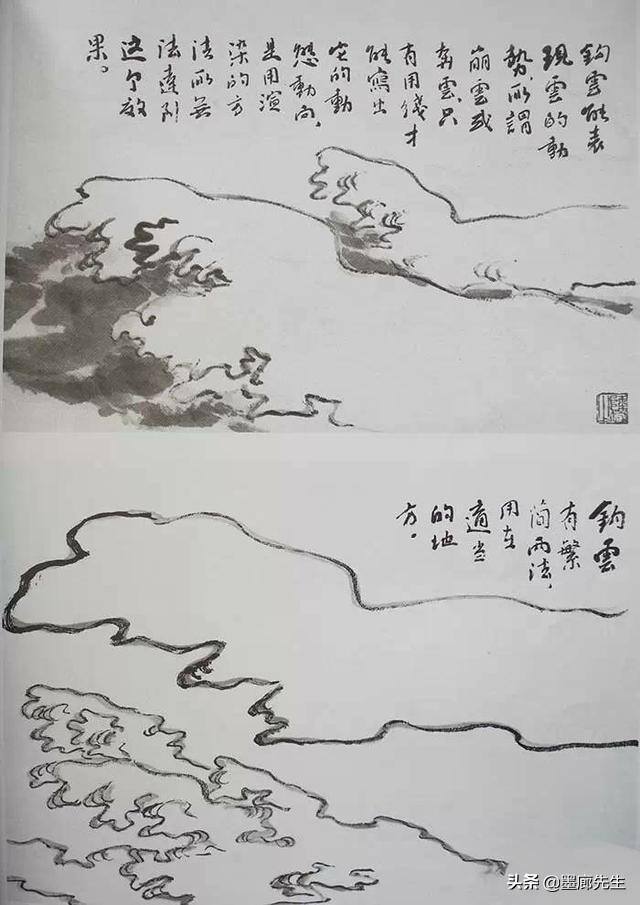 鈎雲能表
現雲的動
勢，所謂
崩雲或
奔雲，只
有用綫才
能寫出
它的動
態動向，
是用渲
染的方
法所無
法達到
这个效
果。
鈎雲
有繁
简两法，
用在
適当
的地
方。
头条 @墨廊先生